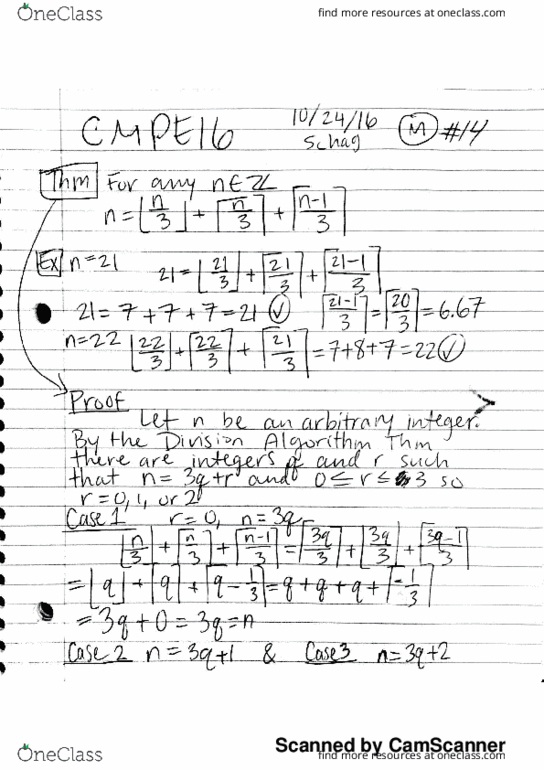 OneClass
find more resources at oneclass.com
CMPE16 10/24/16 Schag M #14
Thm For any n∈ℤ
n = ⌊n/3⌋ + ⌈n/3⌉ + ⌈n-1/3⌉
Ex n=21 21 = ⌊21/3⌋ + ⌈21/3⌉ + ⌈21-1/3⌉
21 = 7 + 7 + 7 = 21 ✓ ⌈21-1/3⌉ = ⌈20/3⌉ = 6.67
n=22 ⌊22/3⌋ + ⌈22/3⌉ + ⌈21/3⌉ = 7+8+7 = 22 ✓
Proof
Let n be an arbitrary integer.
By the Division Algorithm Thm
there are integers q and r such
that n = 3q+r and 0 ≤ r ≤ 3 so
r = 0, 1, or 2
Case 1 r=0, n=3q
⌊n/3⌋ + ⌈n/3⌉ + ⌈n-1/3⌉ = ⌈3q/3⌉ + ⌈3q/3⌉ + ⌈3q-1/3⌉
= ⌊q⌋ + ⌈q⌉ + ⌈q - 1/3⌉ = q + q + q + ⌈-1/3⌉
= 3q + 0 = 3q = n
Case 2 n = 3q+1 & Case 3 n = 3q+2
Scanned by CamScanner
OneClass
find more resources at oneclass.com